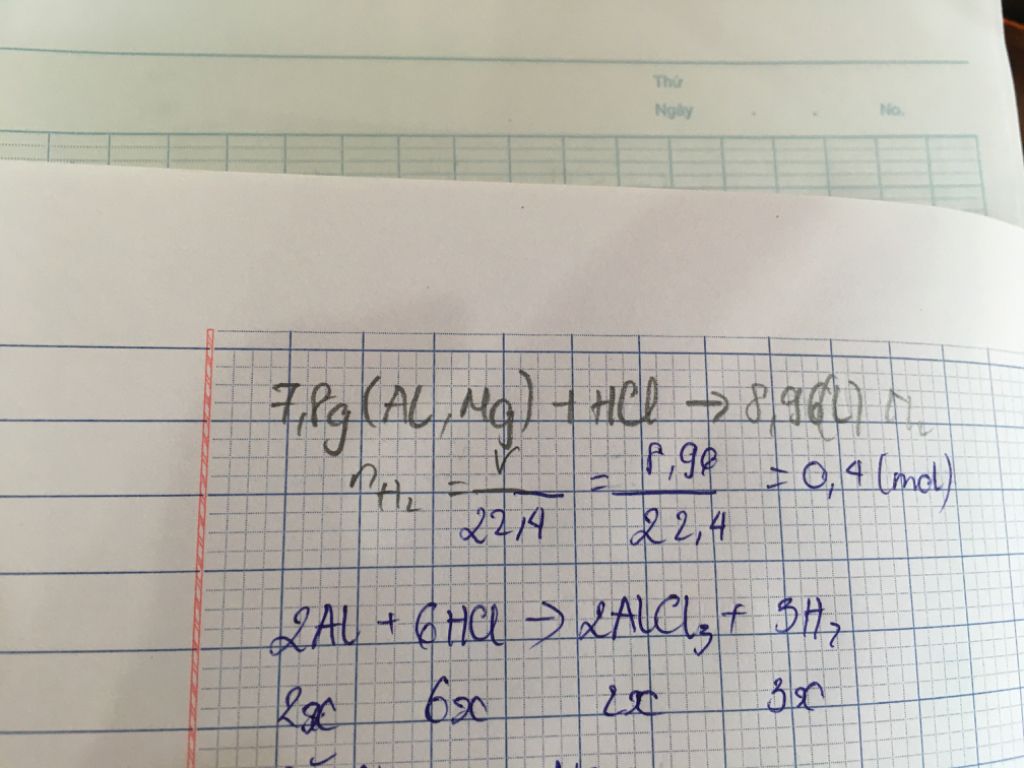 Thứ
Ngày . . No.
7,8g (Al, Mg) + HCl → 8,96(l) H₂
n_H₂ = V/22,4 = 8,96/22,4 = 0,4 (mol)
2Al + 6HCl → 2AlCl₃ + 3H₂
2x 6x 2x 3x